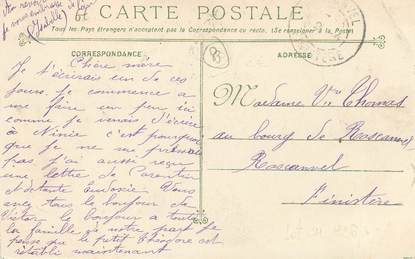 Au revoir
CARTE POSTALE
Tous les Pays étrangers n'acceptent pas la Correspondance au recto. (Se renseigner à la Poste).
CORRESPONDANCE
ADRESSE
Chère mère
Je t'écrirais un de ces
jours. Je commence a
me faire un peu ici
comme je venais d'écrire
à Ninie c'est pourquoi
que je ne me
pas, j'ai aussi reçu
une lettre de Corentin
et de tante Eudoxie Vous
avez tous le bonjour de
Victor le bonjour a toute
la famille de notre part Je
pense que le petit Théodore est
rétabli maintenant
Madame Vve Thomas
au bourg de Roscanvel
Roscanvel
Finistère
FINISTERE